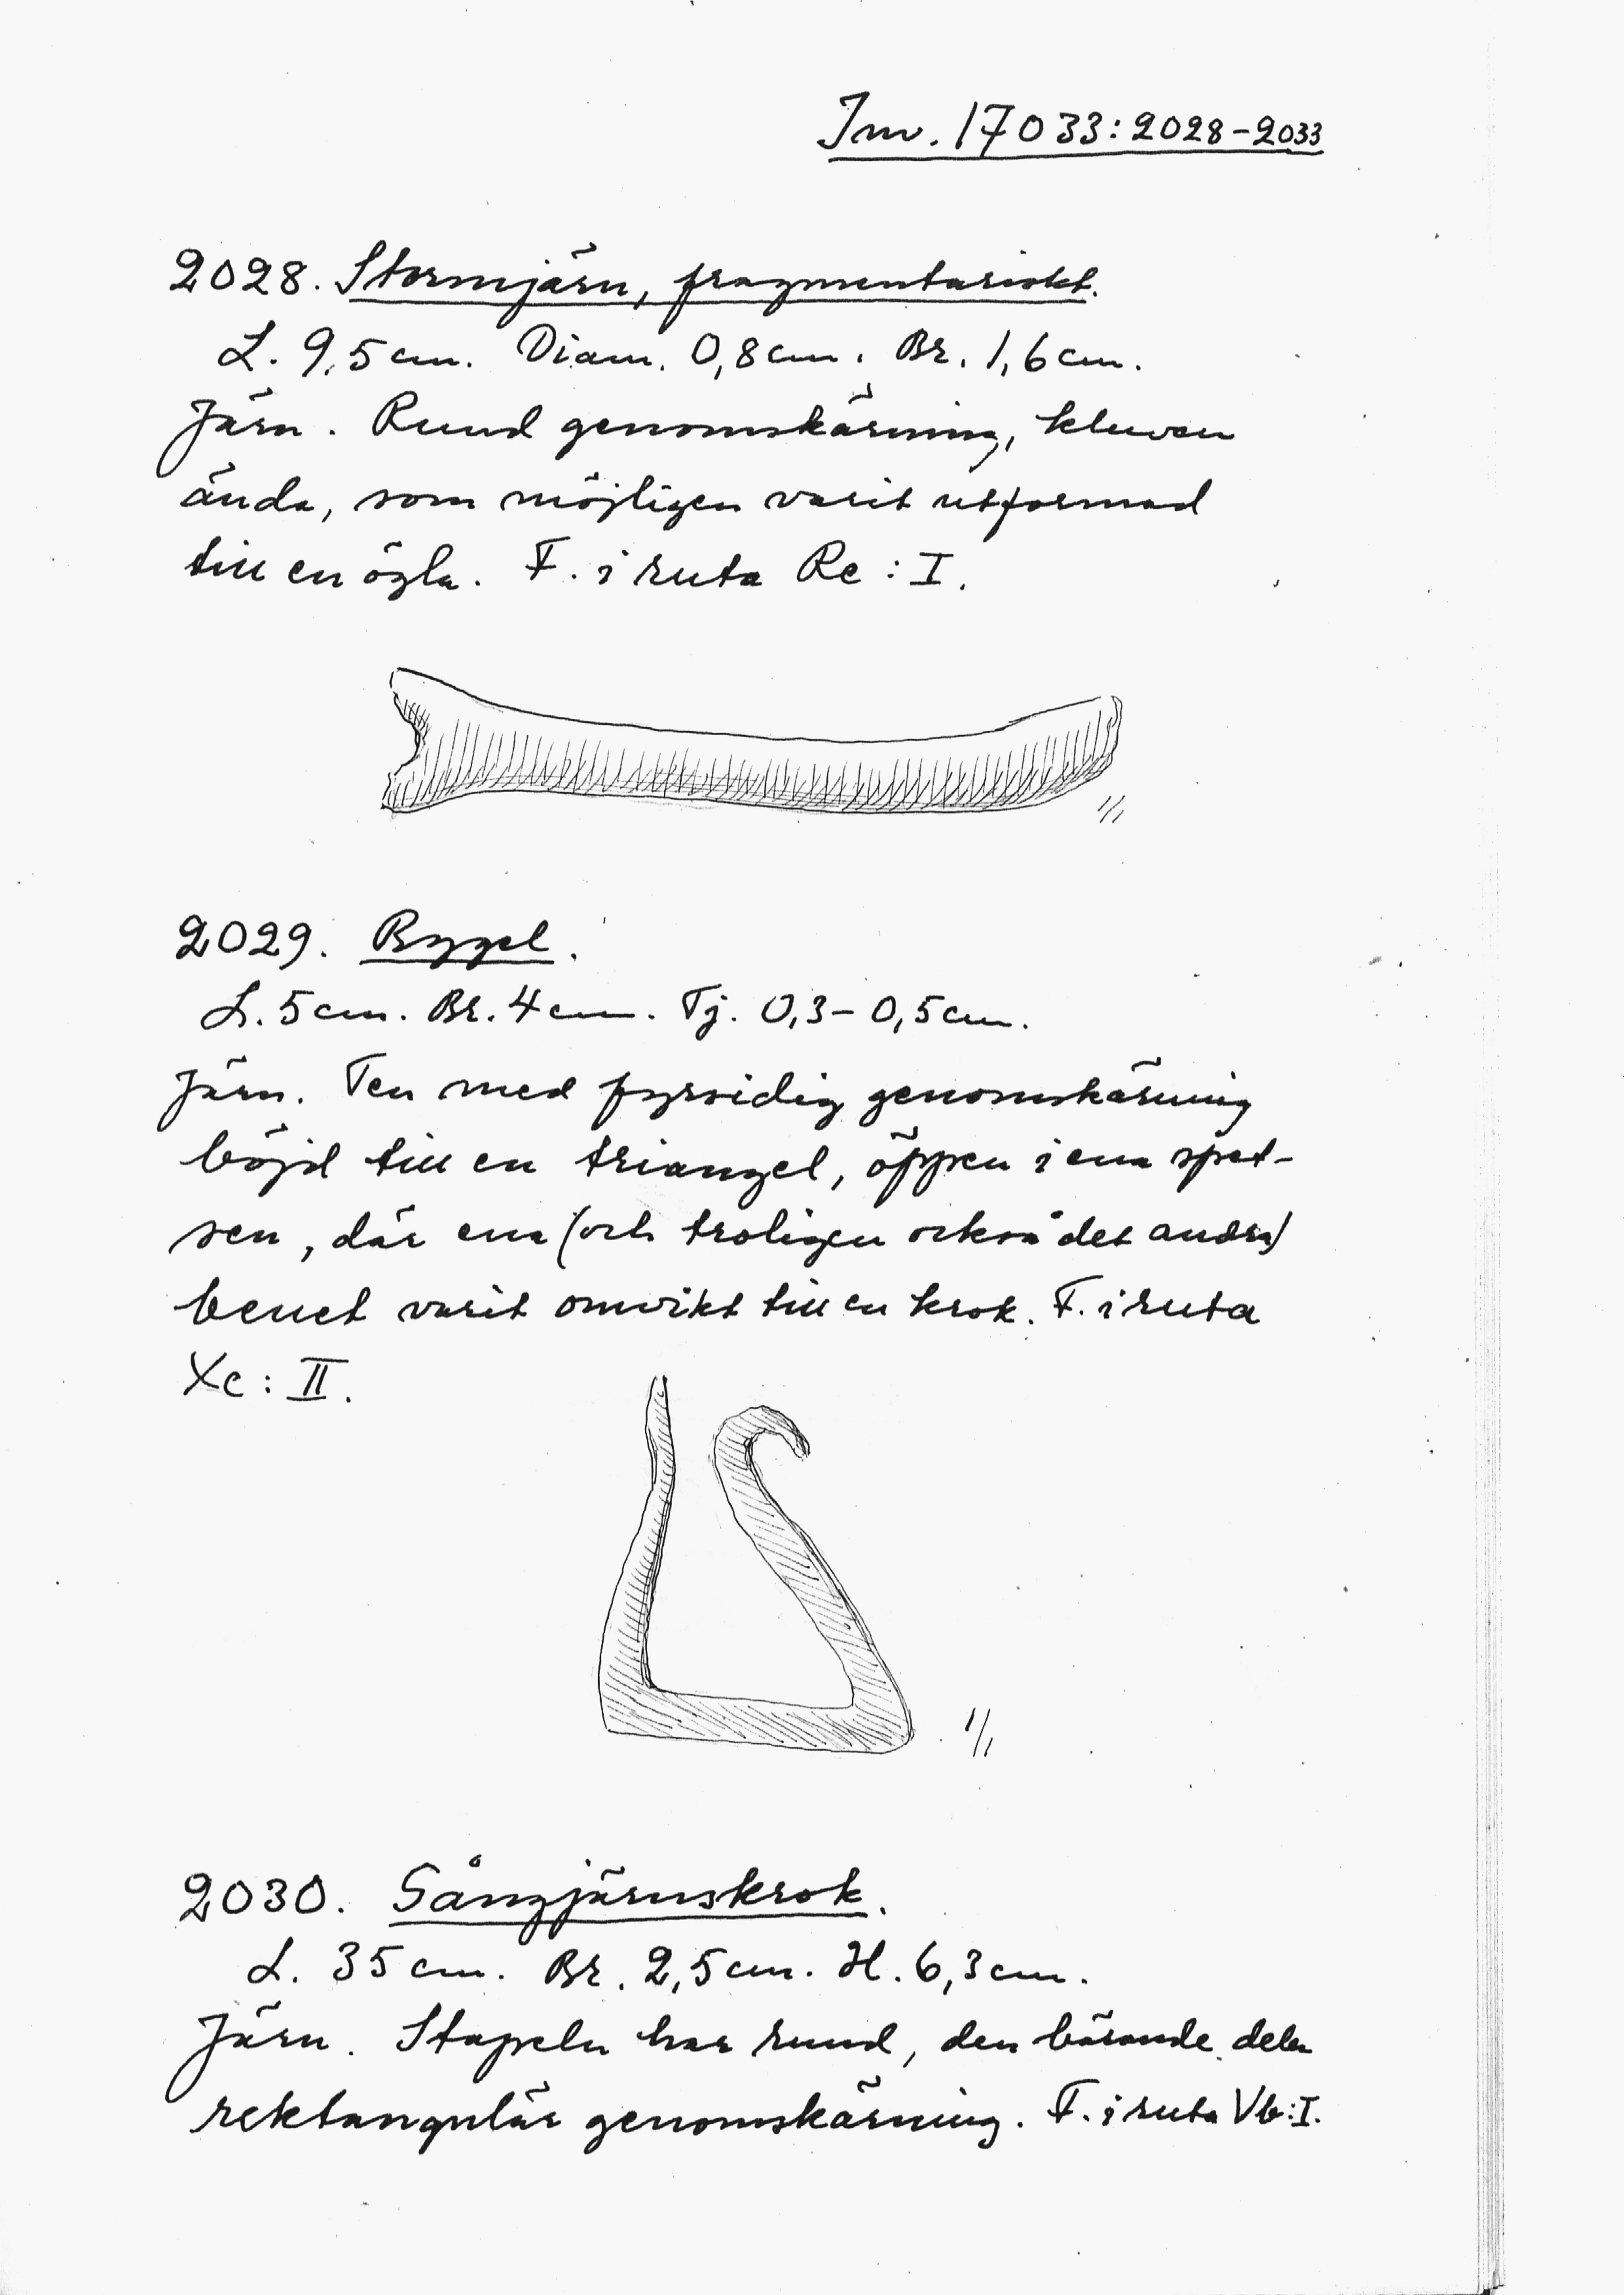 Inv. 17033:2028-2033
2028. Stormjärn, fragmentariskt.
L. 9,5 cm. Diam. 0,8 cm. Br. 1,6 cm.
Järn. Rund genomskärning, kluven
ända, som möjligen varit utformad
till en ögla. F. i ruta Rc : I.
1/1
2029. Bygel.
L. 5 cm. Br. 4 cm. Tj. 0,3 - 0,5 cm.
Järn. Ten med fyrsidig genomskärning
böjd till en triangel, öppen i ena spet-
sen, där ena (och troligen också det andra)
benet varit omvikt till en krok. F. i ruta
Xc : II.
1/1
2030. Gångjärnskrok.
L. 35 cm. Br. 2,5 cm. H. 6,3 cm.
Järn. Stapeln har rund, den bärande delen
rektangulär genomskärning. F. i ruta Vb:I.